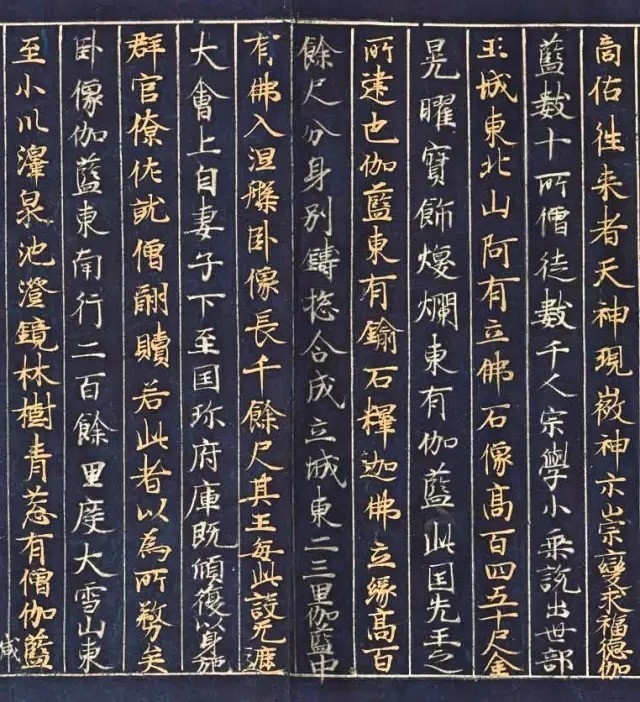 商估徃来者天神現徵神示崇變求福德伽
藍數十所僧徒數千人宗學小乘説出世部
王城東北山阿有立佛石像高百四五十尺金
晃曜寶飾煥爛東有伽藍此国先王之
所建也伽藍東有鍮石釋迦佛立像高百
餘尺分身別鑄捴合成立城東二三里伽藍中
有佛入涅槃卧像長千餘尺其王每此設无遮
大會上自妻子下至国珎府庫既傾復以身施
群官僚佐就僧酬贖若此者以為所務矣
卧像伽藍東南行二百餘里度大雪山東
至小川澤泉池澄鏡林樹青葱有僧伽藍